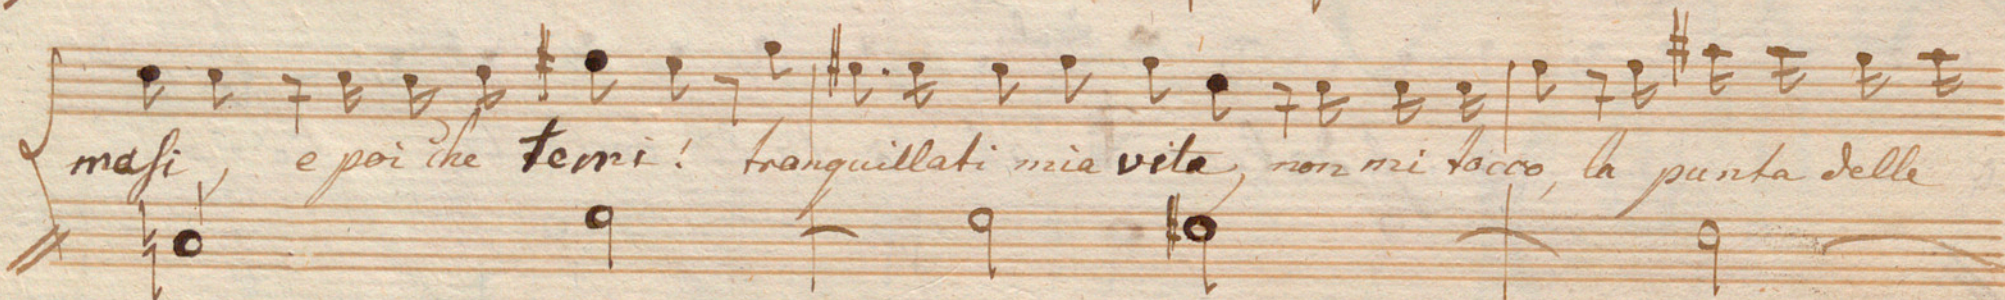 masi, e poi che temi! tranquillati mia vita, non mi tocco, la punta delle